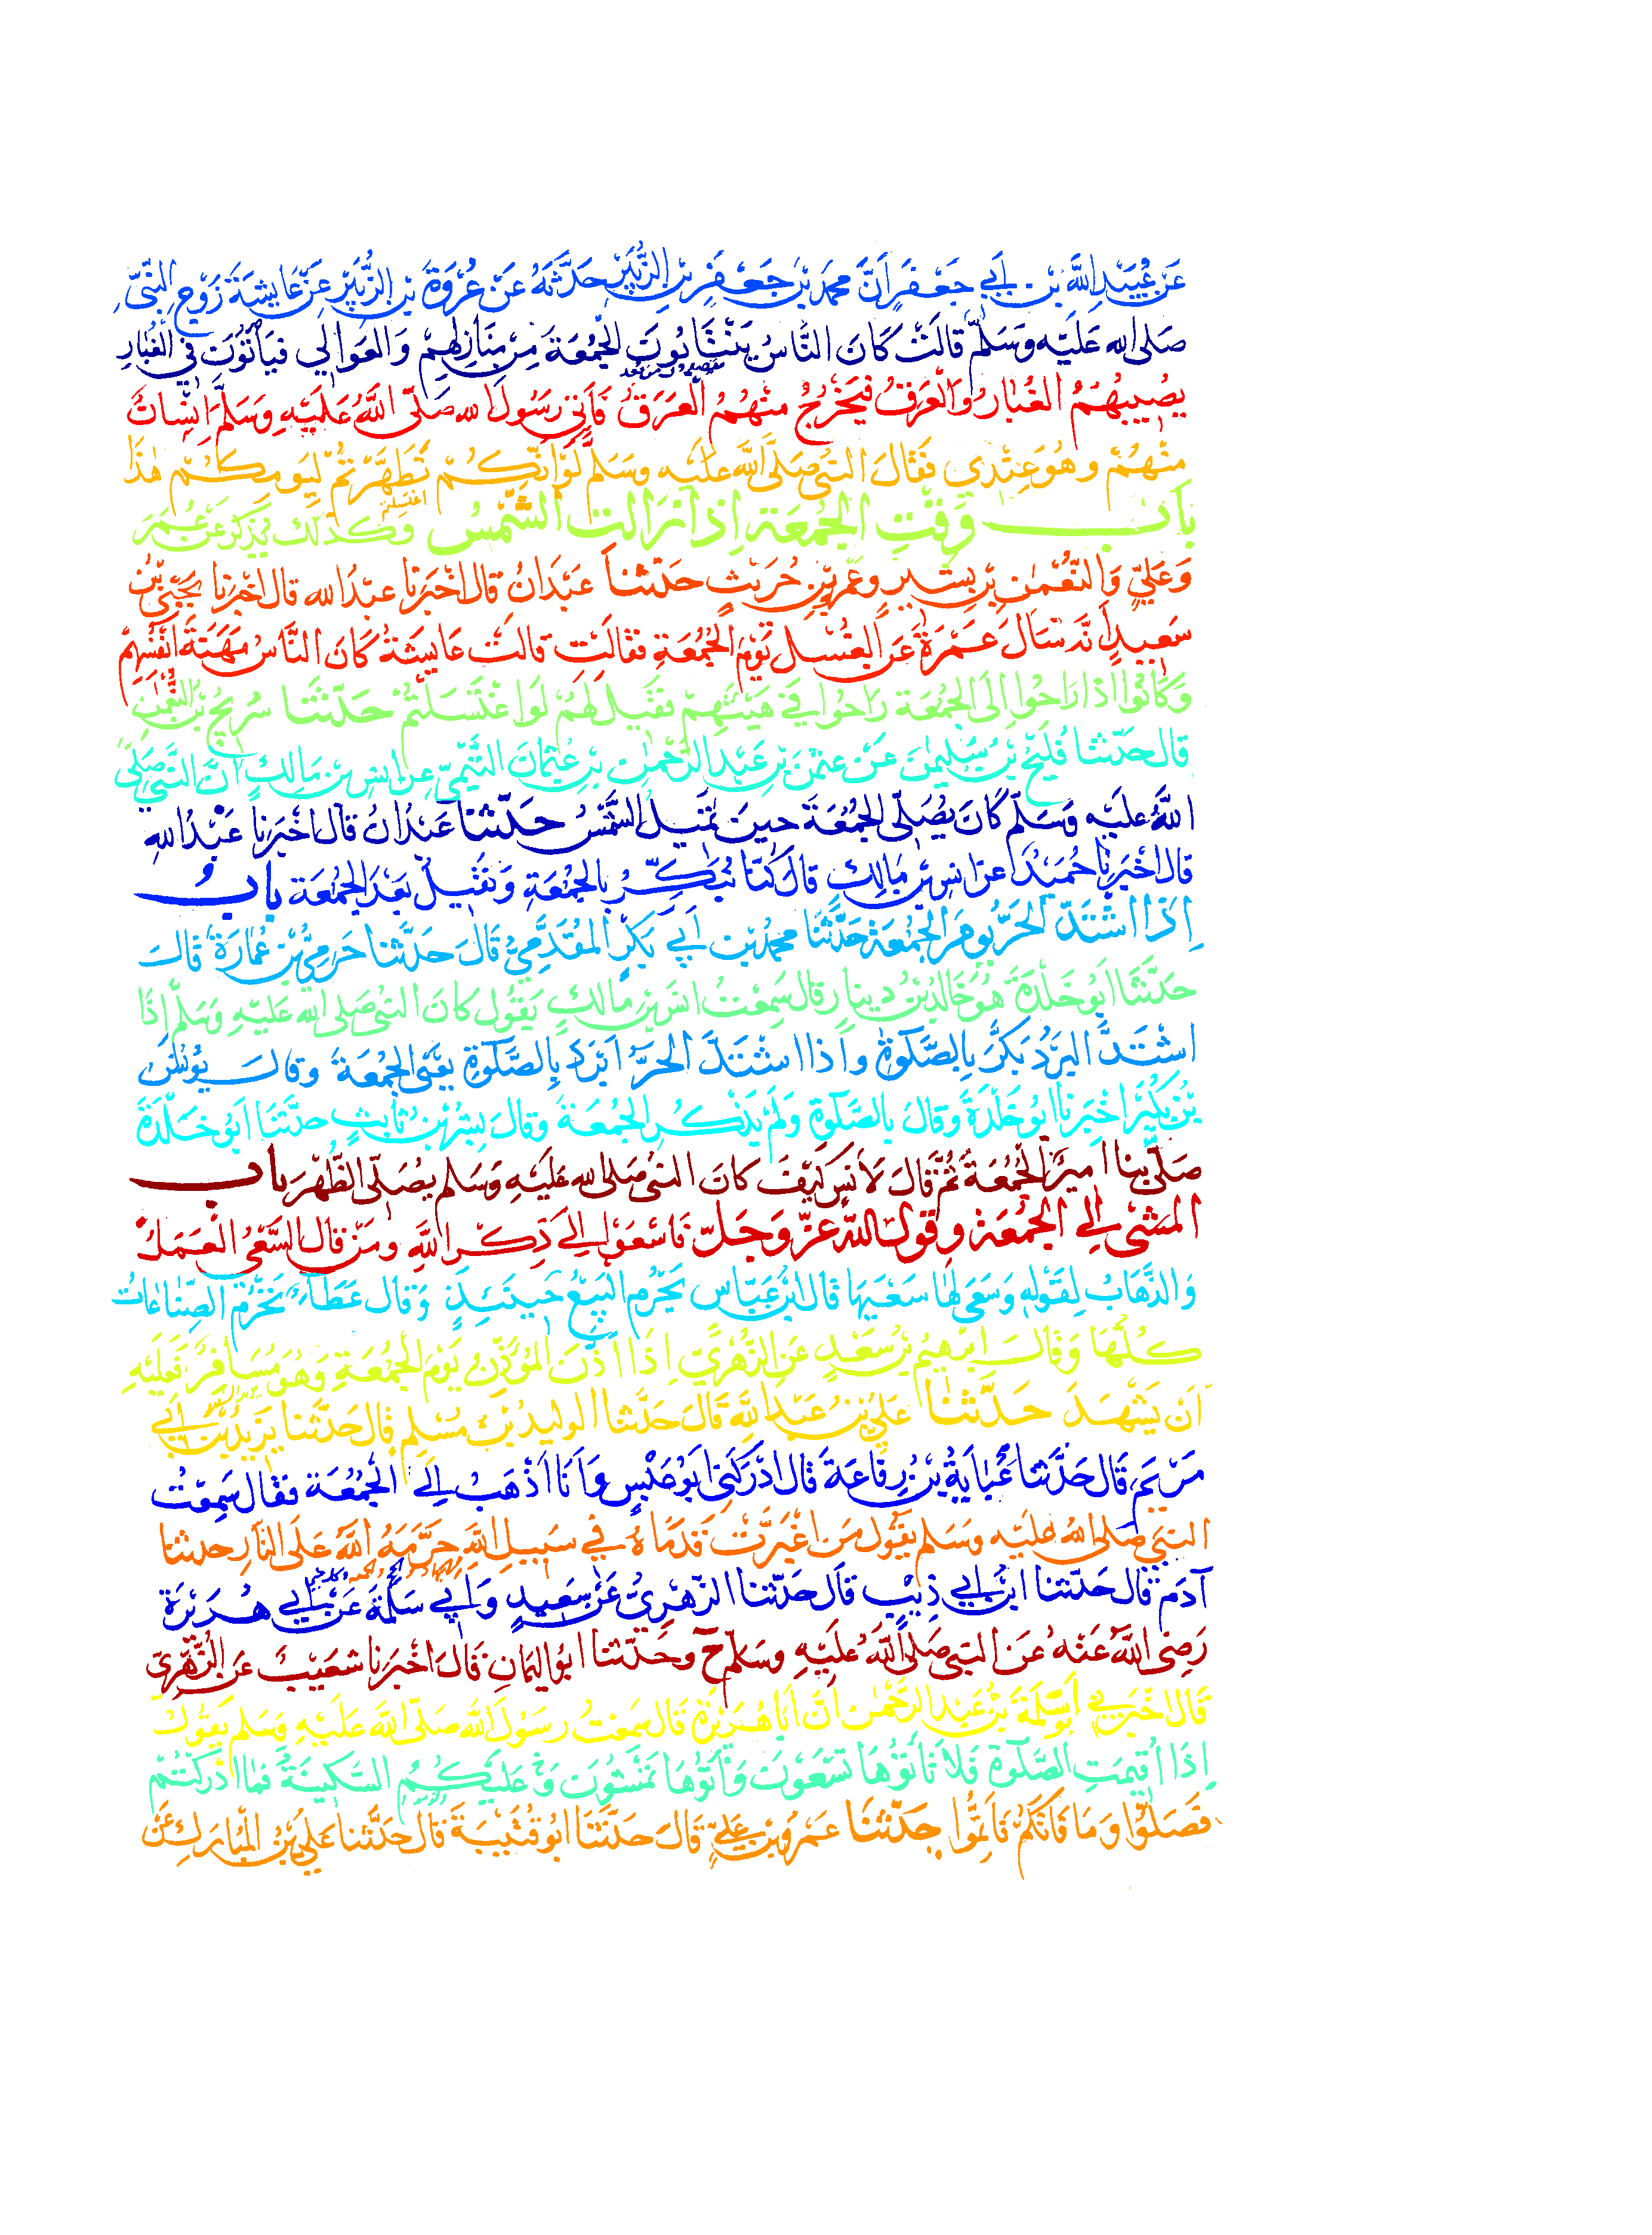 عَنْ عُبَيْدِ اللَّهِ بْنِ أَبِي جَعْفَرٍ أَنَّ مُحَمَّدَ بْنَ جَعْفَرِ بْنِ الزُّبَيْرِ حَدَّثَهُ عَنْ عُرْوَةَ بْنِ الزُّبَيْرِ عَنْ عَايِشَةَ زَوْجِ النَّبِيِّ
صَلى الله عَلَيْهِ وَسَلَّمَ قَالَتْ كَانَ النَّاسُ يَنْتَابُونَ الْجُمُعَةَ مِنْ مَنَازِلِهِمْ وَالْعَوَالِي فَيَأْتُونَ فِي الْغُبَارِ
يُصِيبُهُمُ الْغُبَارُ وَالْعَرَقُ فَيَخْرُجُ مِنْهُمُ الْعَرَقُ فَأَتَى رَسُولَ الله صَلَّى اللَّهُ عَلَيْهِ وَسَلَّمَ إِنْسَانٌ
مِنْهُمْ وَهُوَ عِنْدِي فَقَالَ النَّبِيُّ صَلَّى اللَّهُ عَلَيْهِ وَسَلَّمَ لَوْ أَنَّكُمْ تَطَهَّرْتُمْ لِيَوْمِكُمْ هٰذَا
بَاب وَقْتِ الْجُمُعَة إِذَا زَالَت الشَّمْسُ وَكَذٰلِكَ يُذْكَرُ عَنْ عُمَرَ
وَعَلِيٍّ وَالنُّعْمٰنِ بْنِ بَشِيرٍ وَعَمْرِو بْنِ حُرَيْثٍ حَدَّثَنَا عَبْدَانُ قَالَ أَخْبَرَنَا عَبْدُ الله قَالَ أَخْبَرَنَا يَحْيَى بْنُ
سَعِيدٍ أَنَّهُ سَأَلَ عَمْرَةَ عَنِ الْغُسْلِ يَوْمَ الْجُمُعَةِ فَقَالَتْ قَالَتْ عَايِشَةُ كَانَ النَّاسُ مَهَنَةَ أَنْفُسِهِمْ
وَكَانُوا إِذَا رَاحُوا إِلَى الْجُمُعَة رَاحُوا فِي هَيْئَتِهِمْ فَقِيلَ لَهُمْ لَوِ اغْتَسَلْتُمْ حَدَّثَنَا سُرَيْجُ بْنُ النُّعْمٰنِ
قَالَ حَدَّثَنَا فُلَيْحُ بْنُ سُلَيْمٰنَ عَنْ عُثْمٰنَ بْنِ عَبْدِ الرَّحْمٰنِ بْنِ عُثْمَانَ التَّيْمِيِّ عَنْ أَنَسِ بْنِ مَالِكٍ أَنَّ النَّبِيَّ صَلَّى
اللَّهُ عَلَيْهِ وَسَلَّمَ كَانَ يُصَلِّي الْجُمُعَةَ حِينَ تَمِيلُ الشَّمْسُ حَدَّثَنَا عَبْدَانُ قَالَ أَخْبَرَنَا عَبْدُ اللهِ
قَالَ أَخْبَرَنَا حُمَيْدٌ عَنْ أَنَسِ بْنِ مَالِكٍ قَالَ كُنَّا نُبَكِّرُ بِالْجُمُعَةِ وَنَقِيلُ بَعْدَ الْجُمُعَة بَابٌ
إِذَا اشْتَدَّ الْحَرُّ يَوْمَ الْجُمُعَةِ حَدَّثَنَا مُحَمَّدُ بْنُ أَبِي بَكْرٍ الْمُقَدَّمِيُّ قَالَ حَدَّثَنَا حَرَمِيُّ بْنُ عُمَارَةَ قَالَ
حَدَّثَنَا أَبُو خَلْدَةَ هُوَ خَالِدُ بْنُ دِينَارٍ قَالَ سَمِعْتُ أَنَسَ بْنَ مَالِكٍ يَقُولُ كَانَ النَّبِيُّ صَلى الله عَلَيْهِ وَسَلَّمَ إِذَا
اشْتَدَّ الْبَرْدُ بَكَّرَ بِالصَّلٰوةِ وَإِذَا اشْتَدَّ الْحَرُّ أَبْرَدَ بِالصَّلٰوةِ يَعْنِي الْجُمُعَةَ وَقَالَ يُونُسُ
بْنُ بُكَيْرٍ أَخْبَرَنَا أَبُو خَلْدَةَ وَقَالَ بِالصَّلٰوةِ وَلَمْ يَذْكُرِ الْجُمُعَةَ وَقَالَ بِشْرُ بْنُ ثَابِتٍ حَدَّثَنَا أَبُو خَلْدَةَ
صَلَّى بِنَا أَمِيرُنَا الْجُمُعَةَ ثُمَّ قَالَ لِأَنَسٍ كَيْفَ كَانَ النَّبِيُّ صَلى الله عَلَيْهِ وَسَلَّمَ يُصَلِّي الظُّهْرَ بَاب
الْمَشْيِ إِلَى الْجُمُعَة وَقَوْلِ اللَّهِ عَزَّ وَجَلَّ فَاسْعَوْا إِلَى ذِكْرِ اللَّهِ وَمَنْ قَالَ السَّعْيُ الْعَمَلُ
وَالذَّهَابُ لِقَوْلِهِ وَسَعَى لَهَا سَعْيَهَا قَالَ ابْنُ عَبَّاس يَحْرُمُ الْبَيْعُ حِينَئِذٍ وَقَالَ عَطَاءٌ تَحْرُمُ الصِّنَاعَاتُ
كُلُّهَا وَقَالَ إِبْرٰهِيمُ بْنُ سَعْدٍ عَنِ الزُّهْرِيِّ إِذَا أَذَّنَ الْمُؤَذِّنُ يَوْمَ الْجُمُعَةِ وَهُوَ مُسَافِرٌ فَعَلَيْهِ
أَنْ يَشْهَدَ حَدَّثَنَا عَلِيُّ بْنُ عَبْدِ اللَّهِ قَالَ حَدَّثَنَا الْوَلِيدُ بْنُ مُسْلِمٍ قَالَ حَدَّثَنَا يَزِيدُ بْنُ أَبِي
مَرْيَمَ قَالَ حَدَّثَنَا عَبَايَةُ بْنُ رِفَاعَةَ قَالَ أَدْرَكَنِي أَبُو عَبْسٍ وَأَنَا أَذْهَبُ إِلَى الْجُمُعَة فَقَالَ سَمِعْتُ
النَّبِيَّ صَلى اللهُ عَلَيْهِ وَسَلَّمَ يَقُولُ مَنِ اغْبَرَّتْ قَدَمَاهُ فِي سَبِيلِ اللَّهِ حَرَّمَهُ اللَّهُ عَلَى النَّارِ حَدَّثَنَا
آدَمُ قَالَ حَدَّثَنَا ابْنُ أَبِي ذِئْبٍ قَالَ حَدَّثَنَا الزُّهْرِيُّ عَنْ سَعِيدٍ وَأَبِي سَلَمَةَ عَنْ أَبِي هُرَيْرَةَ
رَضِيَ اللَّهُ عَنْهُ عَنِ النَّبِيِّ صَلَّى اللَّهُ عَلَيْهِ وَسَلَّمَ ح وَحَدَّثَنَا أَبُو الْيَمَانِ قَالَ أَخْبَرَنَا شُعَيْبٌ عَنِ الزُّهْرِيِّ
قَالَ أَخْبَرَنِي أَبُو سَلَمَةَ بْنُ عَبْدِ الرَّحْمٰنِ أَنَّ أَبَا هُرَيْرَةَ قَالَ سَمِعْتُ رَسُولَ اللَّهِ صَلَّى اللَّهُ عَلَيْهِ وَسَلَّمَ يَقُولُ
إِذَا أُقِيمَتِ الصَّلٰوةُ فَلَا تَأْتُوهَا تَسْعَوْنَ وَأْتُوهَا تَمْشُونَ وَعَلَيْكُمُ السَّكِينَةُ فَمَا أَدْرَكْتُمْ
فَصَلُّوا وَمَا فَاتَكُمْ فَأَتِمُّوا حَدَّثَنَا عَمْرُو بْنُ عَلِيٍّ قَالَ حَدَّثَنَا أَبُو قُتَيْبَةَ قَالَ حَدَّثَنَا عَلِيُّ بْنُ الْمُبَارَكِ عَنْ